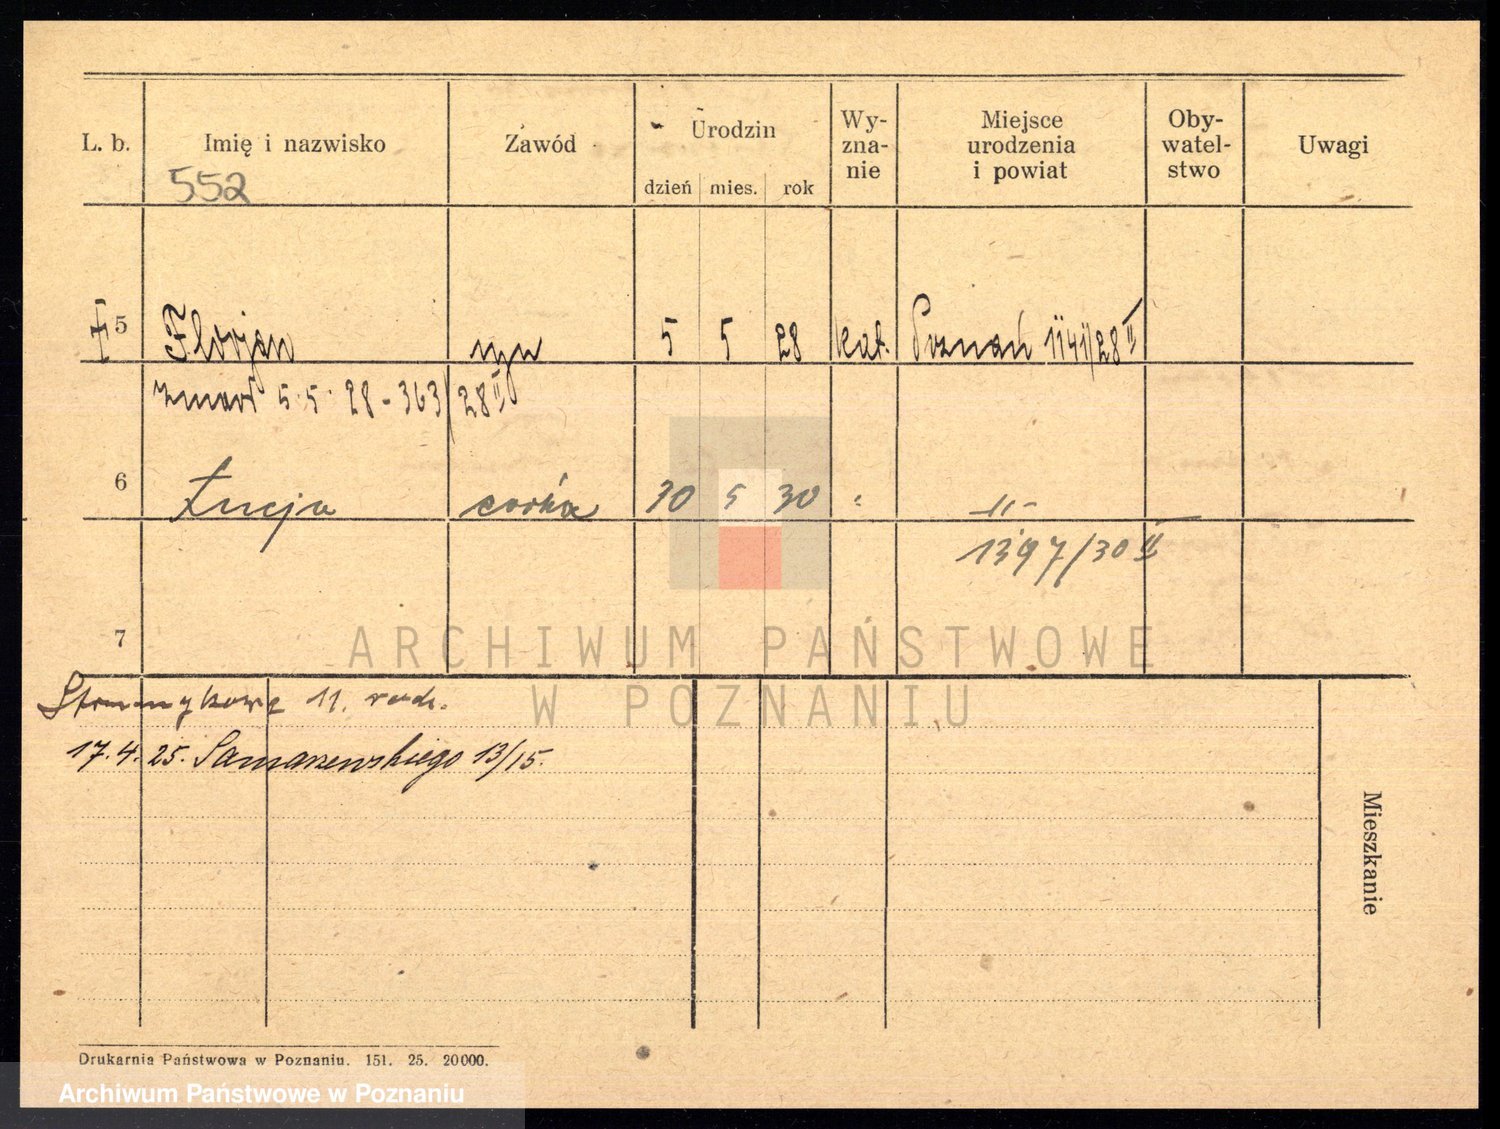 L. b. Imię i nazwisko Zawód Urodzin dzień mies. rok Wy- zna- nie Miejsce urodzenia i powiat Oby- watel- stwo Uwagi
552
† 5 Florjan syn 5 5 28 kat. Poznań 1141/28 II
zmarł 5.5.28 - 363/28 II
6 Łucja córka 30 5 30 " -"-
1397/30 II
7
11.
17.4.25. Samarzewskiego 13/15.
Mieszkanie
Drukarnia Państwowa w Poznaniu. 151. 25. 20000.
ARCHIWUM PAŃSTWOWE
W POZNANIU
Archiwum Państwowe w Poznaniu